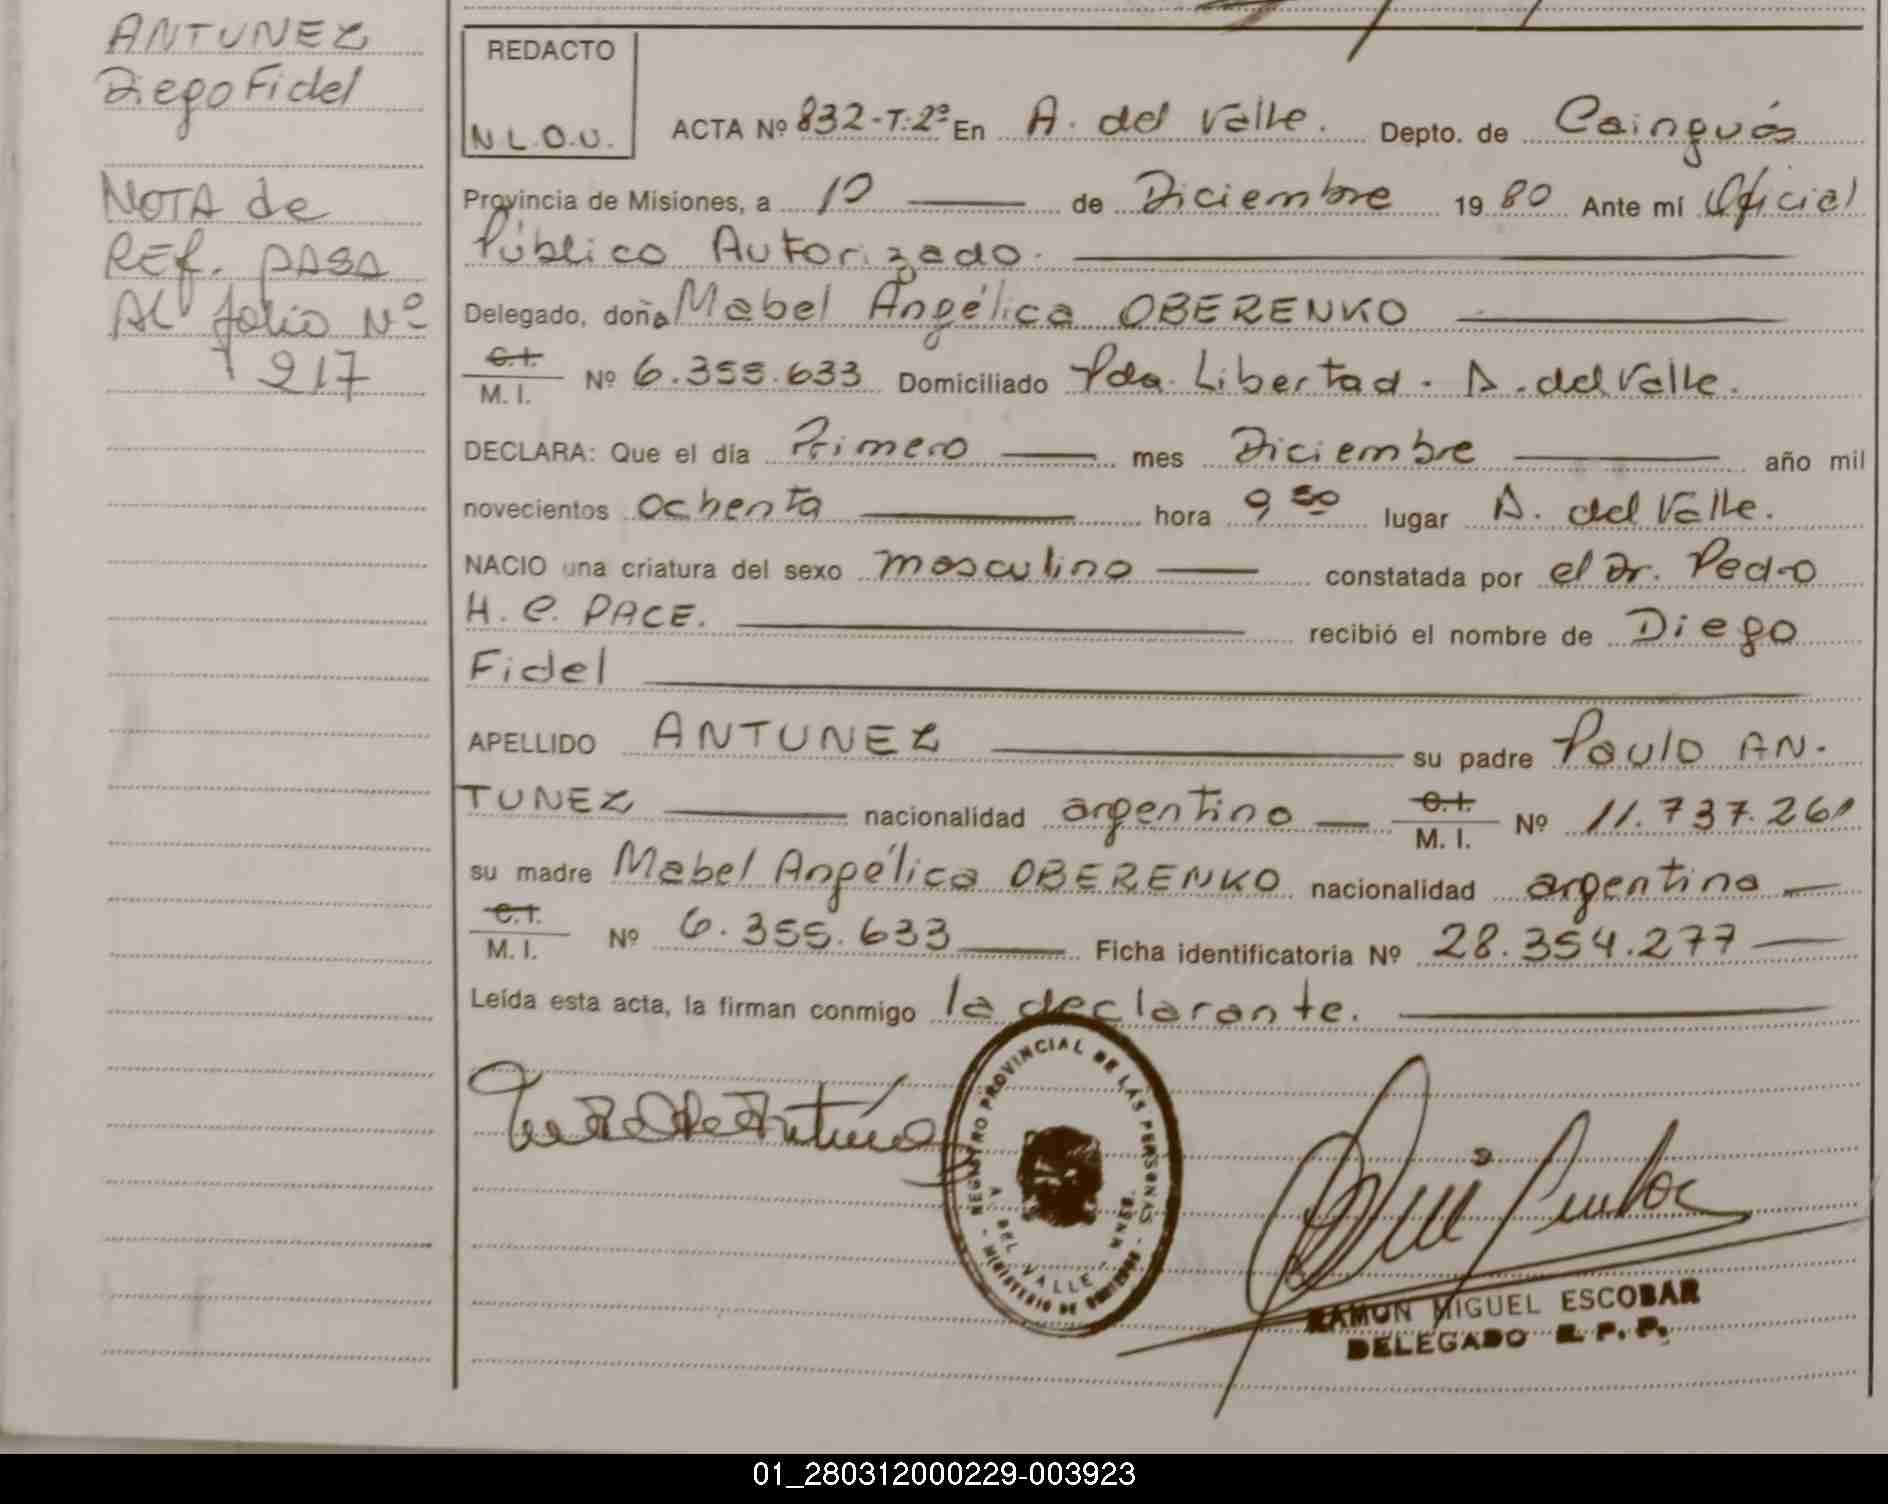 ANTUNEZ
Diego Fidel
NOTA de
REf. PASA
AL folio Nº
217
REDACTO
N L.O.U.
ACTA Nº 832-T:2º En A. del Valle. Depto. de Cainguás
Provincia de Misiones, a 10 de Diciembre 1980 Ante mí Oficial
Público Autorizado.
Delegado, doña Mabel Angélica OBERENKO
C.I. M. I. Nº 6.355.633 Domiciliado Pda. Libertad. A. del Valle.
DECLARA: Que el día Primero mes Diciembre año mil
novecientos ochenta hora 9 50 lugar A. del Valle.
NACIO una criatura del sexo masculino constatada por el Dr. Pedro
H. C. PACE. recibió el nombre de Diego
Fidel
APELLIDO ANTUNEZ su padre Paulo AN.
TUNEZ nacionalidad argentino C.I. M. I. Nº 11.737.261
su madre Mabel Angélica OBERENKO nacionalidad argentina
C.I. M. I. Nº 6.355.633 Ficha identificatoria Nº 28.354.277
Leída esta acta, la firman conmigo la declarante.
REGISTRO PROVINCIAL DE LAS PERSONAS
A. DEL VALLE - MNES.
MINISTERIO DE GOBIERNO
RAMON MIGUEL ESCOBAR
DELEGADO R. P. P.
01_280312000229-003923